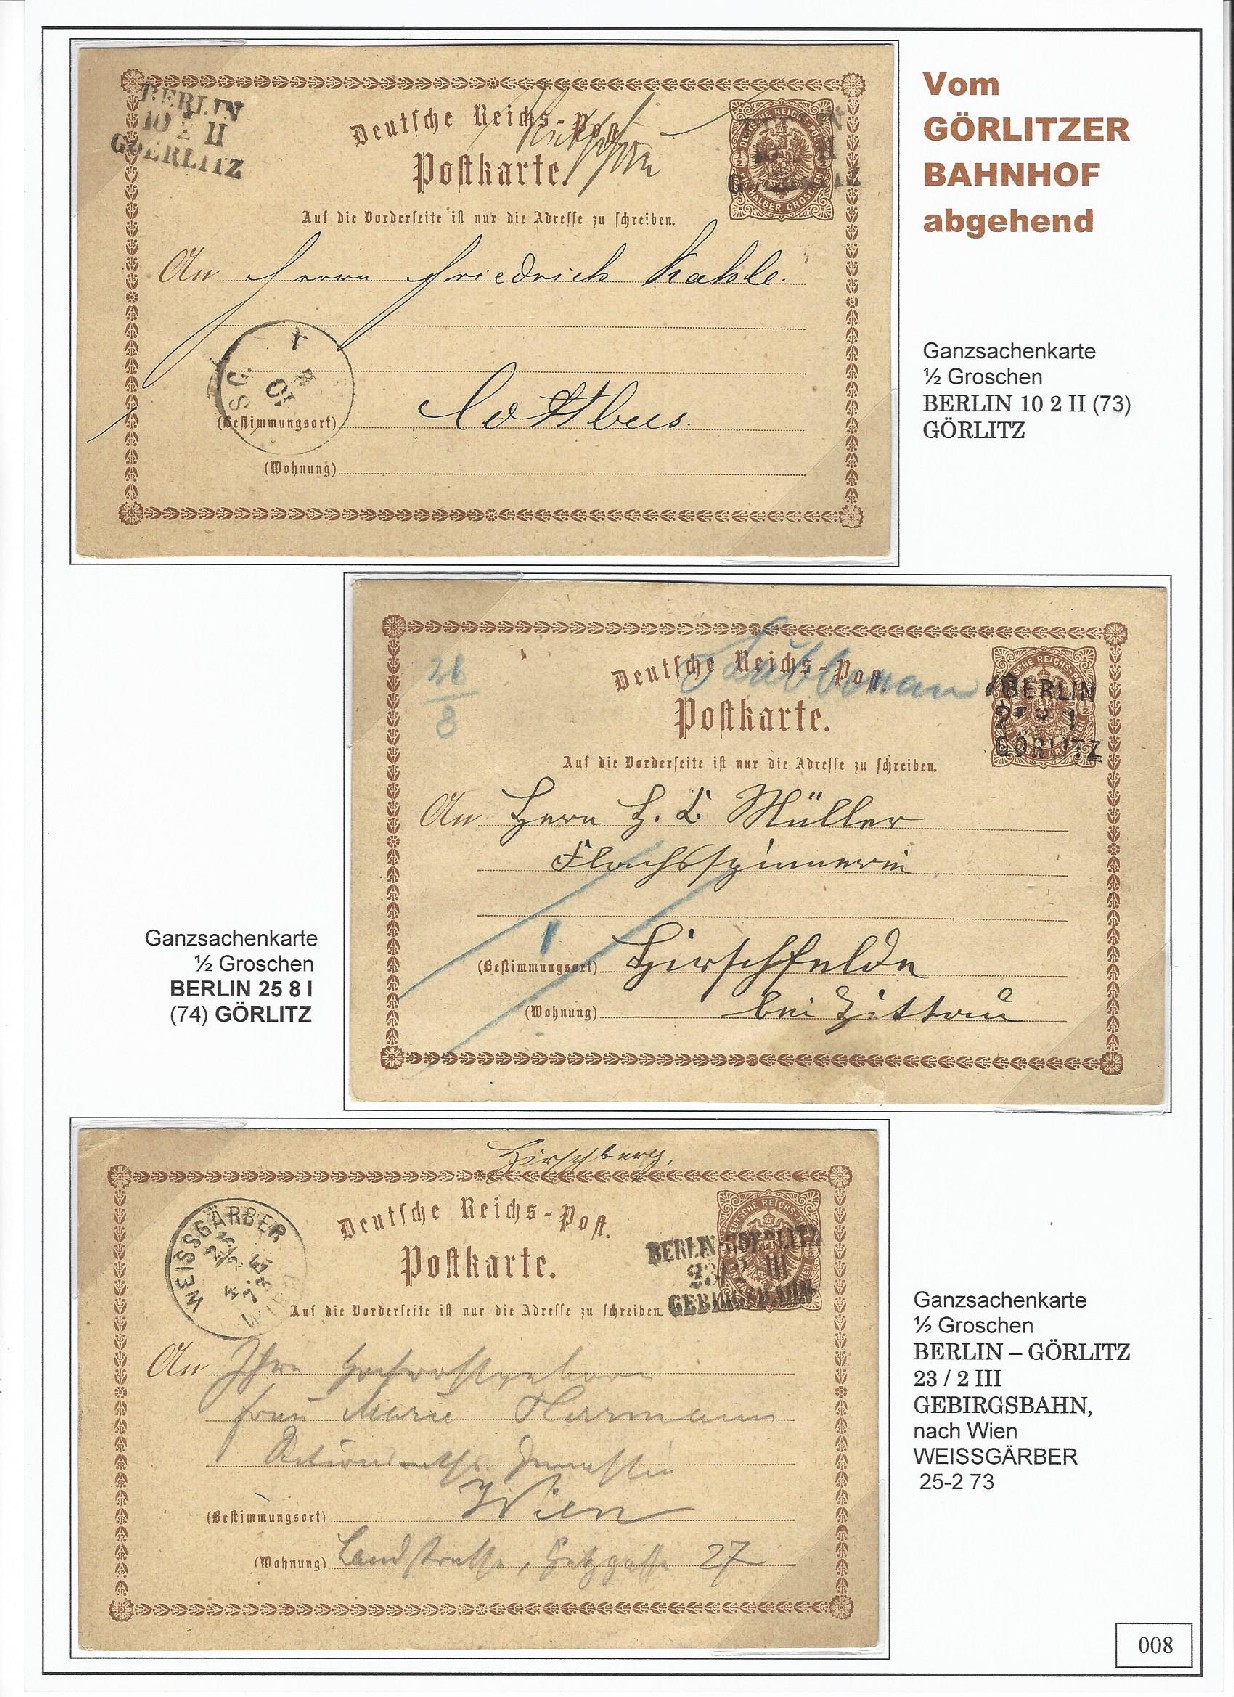 Vom
GÖRLITZER
BAHNHOF
abgehend
BERLIN
10 2 II
GOERLITZ
Deutsche Reichs-Post.
Postkarte.
Auf die Vorderseite ist nur die Adresse zu schreiben.
An Herrn Friedrich Kahle.
(Bestimmungsort) Cottbus.
(Wohnung)
Ganzsachenkarte
½ Groschen
BERLIN 10 2 II (73)
GÖRLITZ
26
8
Lübbenau
Deutsche Reichs-Post.
Postkarte.
BERLIN
GÖRLITZ
Auf die Vorderseite ist nur die Adresse zu schreiben.
An Herrn H. C. Müller
Flachsspinnerei
(Bestimmungsort) Hirschfelde
(Wohnung) bei Zittau
Ganzsachenkarte
½ Groschen
BERLIN 25 8 I
(74) GÖRLITZ
Hirschberg.
WEISSGÄRBER
25
2
73
WIEN
Deutsche Reichs-Post.
Postkarte.
BERLIN-GOERLITZ
23/2 III
GEBIRGSBAHN
Auf die Vorderseite ist nur die Adresse zu schreiben.
An Ihre
Frau Marie Herrmann
(Bestimmungsort) Wien
(Wohnung) Landstrasse, 27
Ganzsachenkarte
½ Groschen
BERLIN – GÖRLITZ
23 / 2 III
GEBIRGSBAHN,
nach Wien
WEISSGÄRBER
25-2 73
008